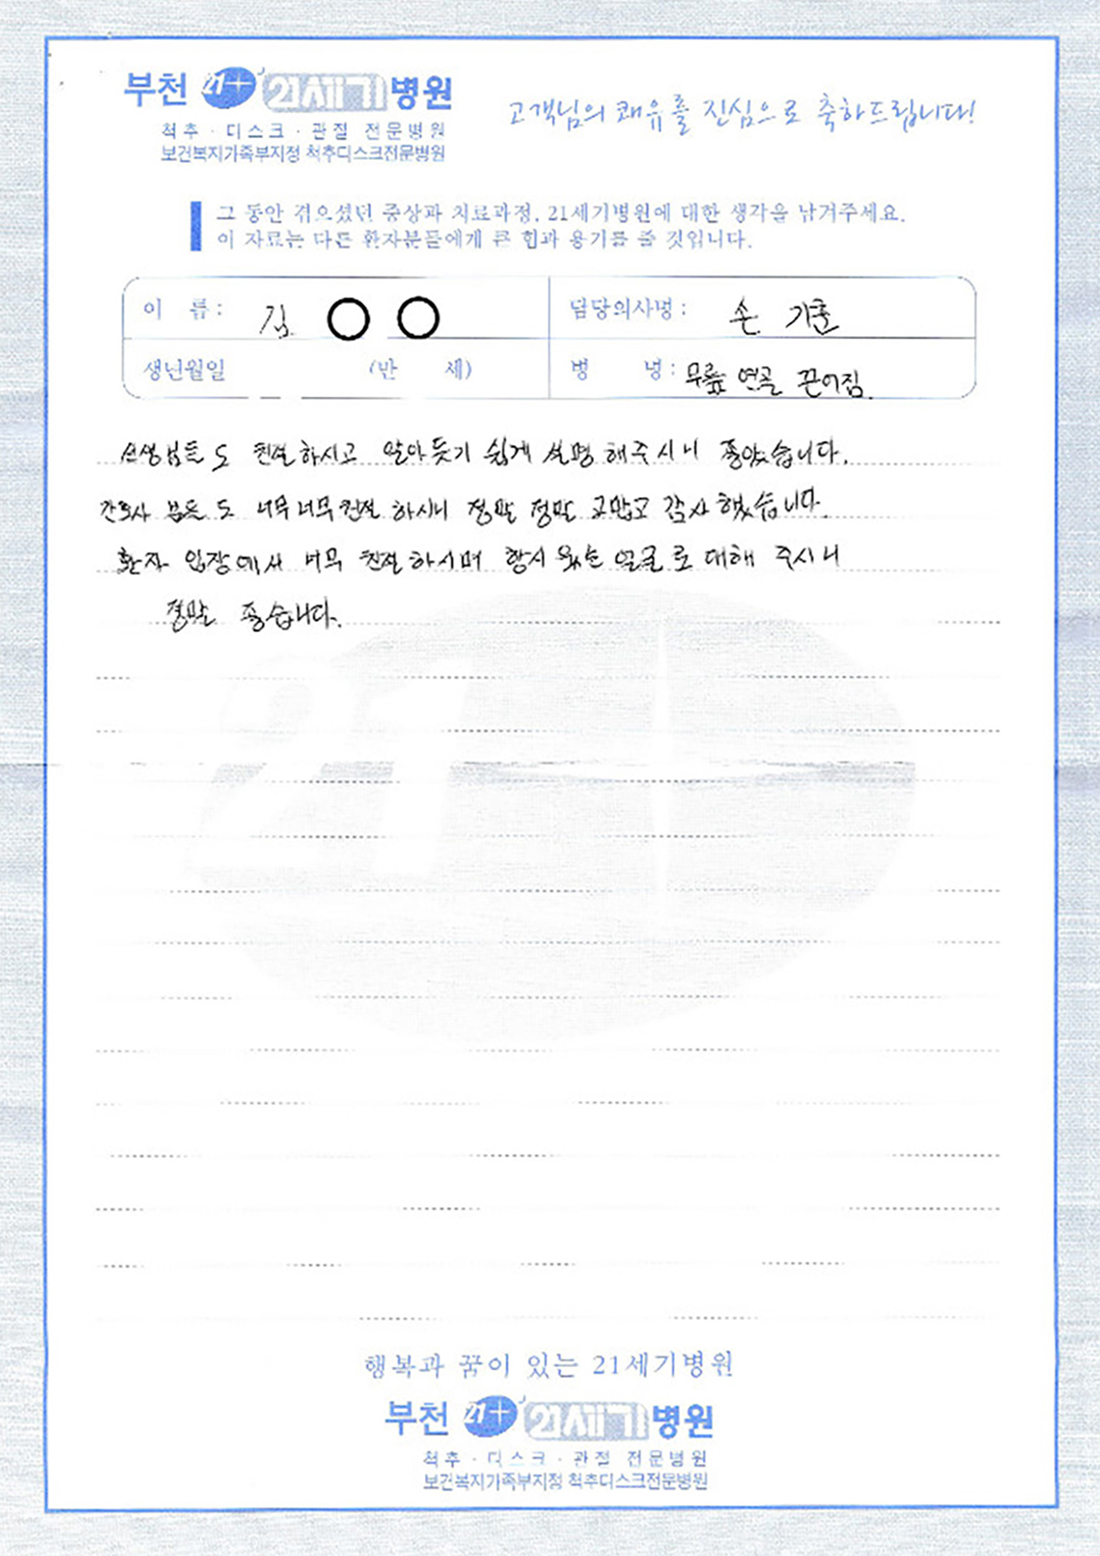 부천 21+ 21세기병원
척추 · 디스크 · 관절 전문병원
보건복지가족부지정 척추디스크전문병원
고객님의 쾌유를 진심으로 축하드립니다!
그 동안 겪으셨던 증상과 치료과정, 21세기병원에 대한 생각을 남겨주세요.
이 자료는 다른 환자분들에게 큰 힘과 용기를 줄 것입니다.
이 름 : 김 ○ ○
담당의사명 : 손 기훈
생년월일 (만 세)
병 명 : 무릎 연골 끈어짐.
선생님들도 친절하시고 알아듯기 쉽게 설명 해주시니 좋았습니다.
간호사 님들도 너무너무 친절 하시니 정말 정말 고맙고 감사 했습니다.
환자 입장에서 너무 친절하시며 항시 웃는 얼굴로 대해 주시니
정말 좋습니다.
21
행복과 꿈이 있는 21세기병원
부천 21+ 21세기병원
척추 · 디스크 · 관절 전문병원
보건복지가족부지정 척추디스크전문병원